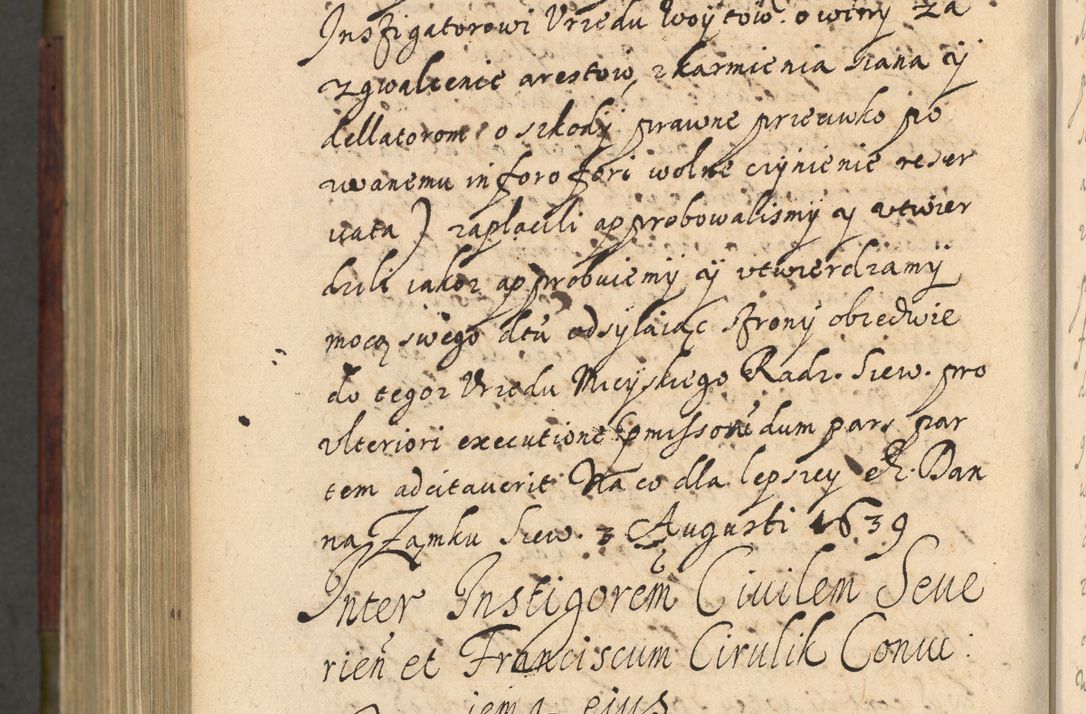 Instigatorowi Vrzędu Woytow. o winy za
zgwałcenie arestow, zkarmienia siana ÿ
dellatorom o szkody prawne przeciwko po
wanemu in foro fori wolne czynienie reser
uata) zapłacili approbowalismy ÿ vtwier
dzili iakoz approbuiemy ÿ vtwierdzamy
mocą swego dtu odsyłaiąc strony obiedwie
do tegoz Vrzędu Mieyskiego Radz. Siew. pro
vlteriori executione dum pars par
tem adcitauerit Na co dla lepszey etc. Dan
na Zamku Siew. 3 Augusti 1639
Inter Instigorem Ciuilem Seue
rien et Franciscum Cirulik Conuic:
eius